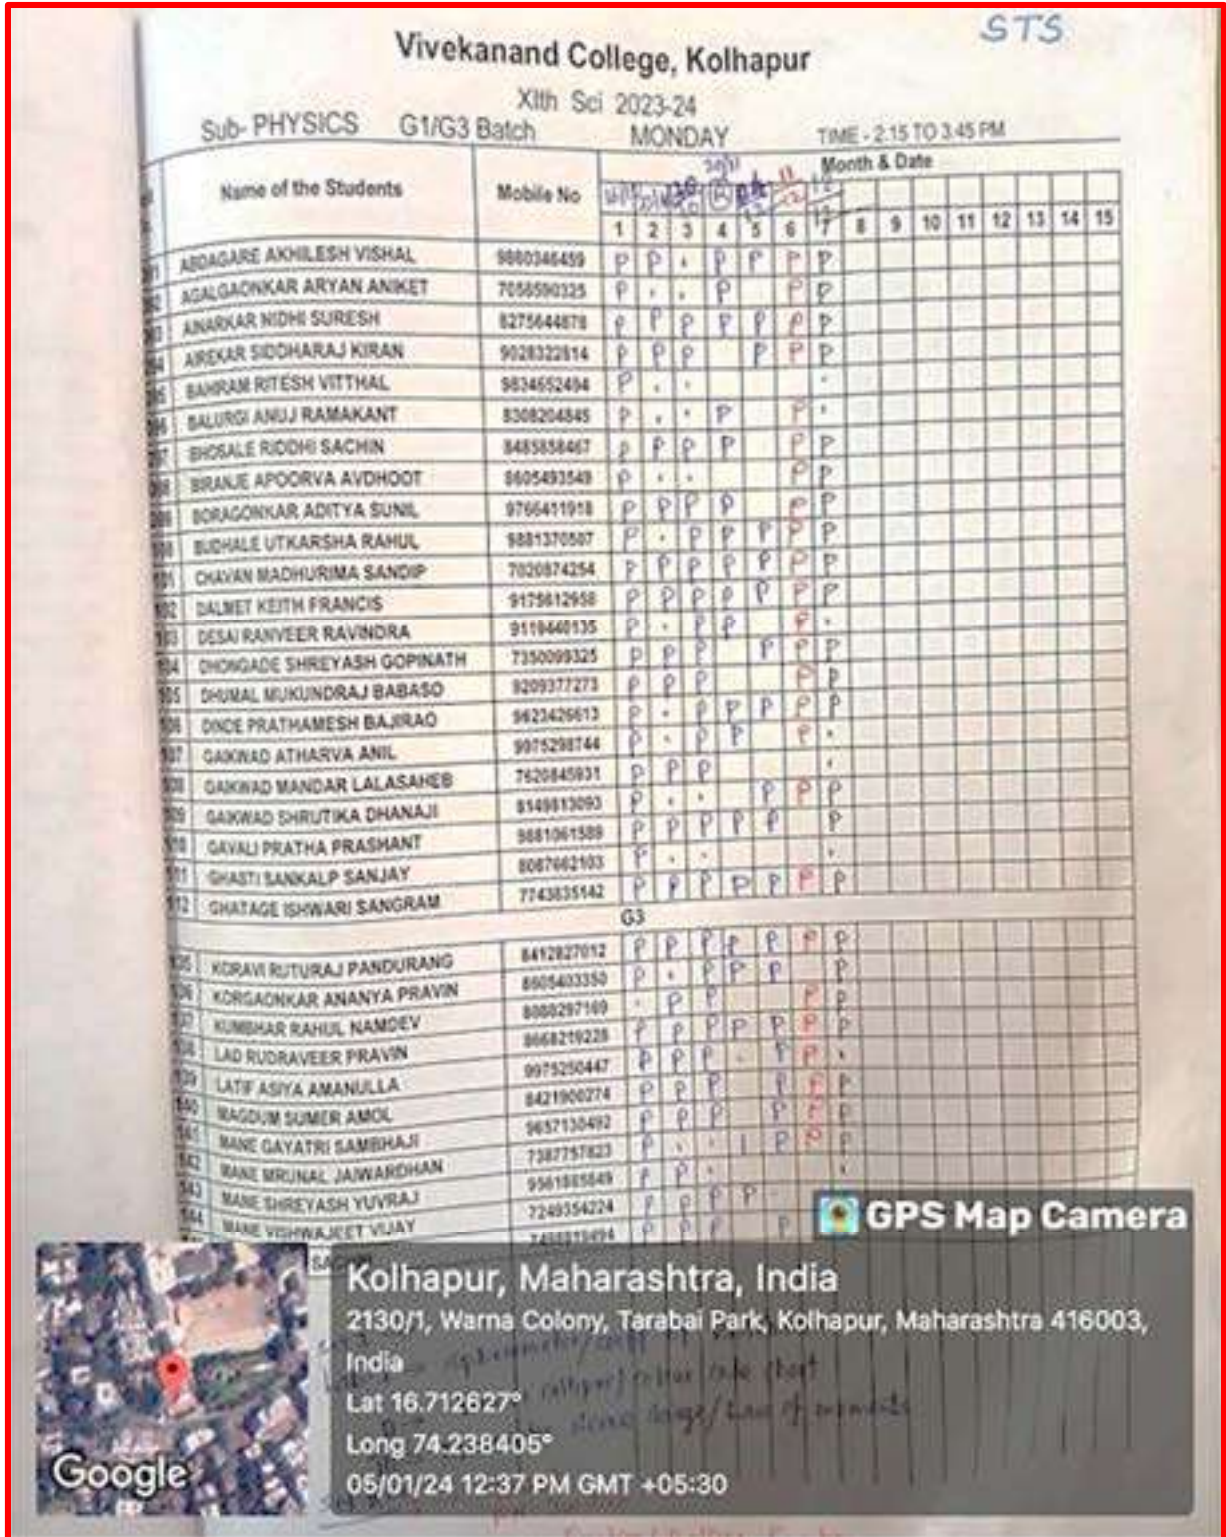 STS
Vivekanand College, Kolhapur
XIth Sci 2023-24
Sub- PHYSICS G1/G3 Batch MONDAY TIME - 2.15 TO 3.45 PM
Name of the Students Mobile No Month & Date
1 2 3 4 5 6 7 8 9 10 11 12 13 14 15
ABDAGARE AKHILESH VISHAL 9860346459 P P . P P P P
AGALGAONKAR ARYAN ANIKET 7056590325 P . . P P P
AINARKAR NIDHI SURESH 8275644878 P P P P P P P
AIREKAR SIDDHARAJ KIRAN 9028322814 P P P P P P
BAHRAM RITESH VITTHAL 9834652494 P . . .
BALURGI ANUJ RAMAKANT 8308204845 P . . P P .
BHOSALE RIDDHI SACHIN 8485858467 P P P P P P
BIRANJE APOORVA AVDHOOT 8605493549 P . . P P
BORAGONKAR ADITYA SUNIL 9766411918 P P P P P P
BUDHALE UTKARSHA RAHUL 9881370507 P . P P P P P
101 CHAVAN MADHURIMA SANDIP 7020874254 P P P P P P P
102 DALMET KEITH FRANCIS 9175612958 P P P P P P P
103 DESAI RANVEER RAVINDRA 9119440135 P . P P P .
104 DHONGADE SHREYASH GOPINATH 7350099325 P P P P P P
105 DHUMAL MUKUNDRAJ BABASO 9209377273 P P P P P
106 DINDE PRATHAMESH BAJIRAO 9623426613 P . P P P P P
107 GAIKWAD ATHARVA ANIL 9975298744 P . P P P .
108 GAIKWAD MANDAR LALASAHEB 7620845931 P P P .
109 GAIKWAD SHRUTIKA DHANAJI 8149813093 P . . P P P
110 GAVALI PRATHA PRASHANT 9881061589 P P P P P P
111 GHASTI SANKALP SANJAY 8087662103 P . . .
112 GHATAGE ISHWARI SANGRAM 7743835142 P P P P P P P
G3
135 KORAVI RUTURAJ PANDURANG 8412827012 P P P P P P P
136 KORGAONKAR ANANYA PRAVIN 8605403350 P . P P P P
137 KUMBHAR RAHUL NAMDEV 8088297169 . P P P P
138 LAD RUDRAVEER PRAVIN 9668219228 P P P P P P P
139 LATIF ASIYA AMANULLA 9975250447 P P P . P P .
140 MAGDUM SUMER AMOL 8421900274 P P P P P P
141 MANE GAYATRI SAMBHAJI 9657130492 P P P P P P
142 MANE MRUNAL JAIWARDHAN 7387757823 P . . P P P
143 MANE SHREYASH YUVRAJ P P . .
144 MANE VISHWAJEET VIJAY 7249354224 P P P P
GPS Map Camera
Kolhapur, Maharashtra, India
2130/1, Warna Colony, Tarabai Park, Kolhapur, Maharashtra 416003,
India
Lat 16.712627°
Long 74.238405°
05/01/24 12:37 PM GMT +05:30
Google